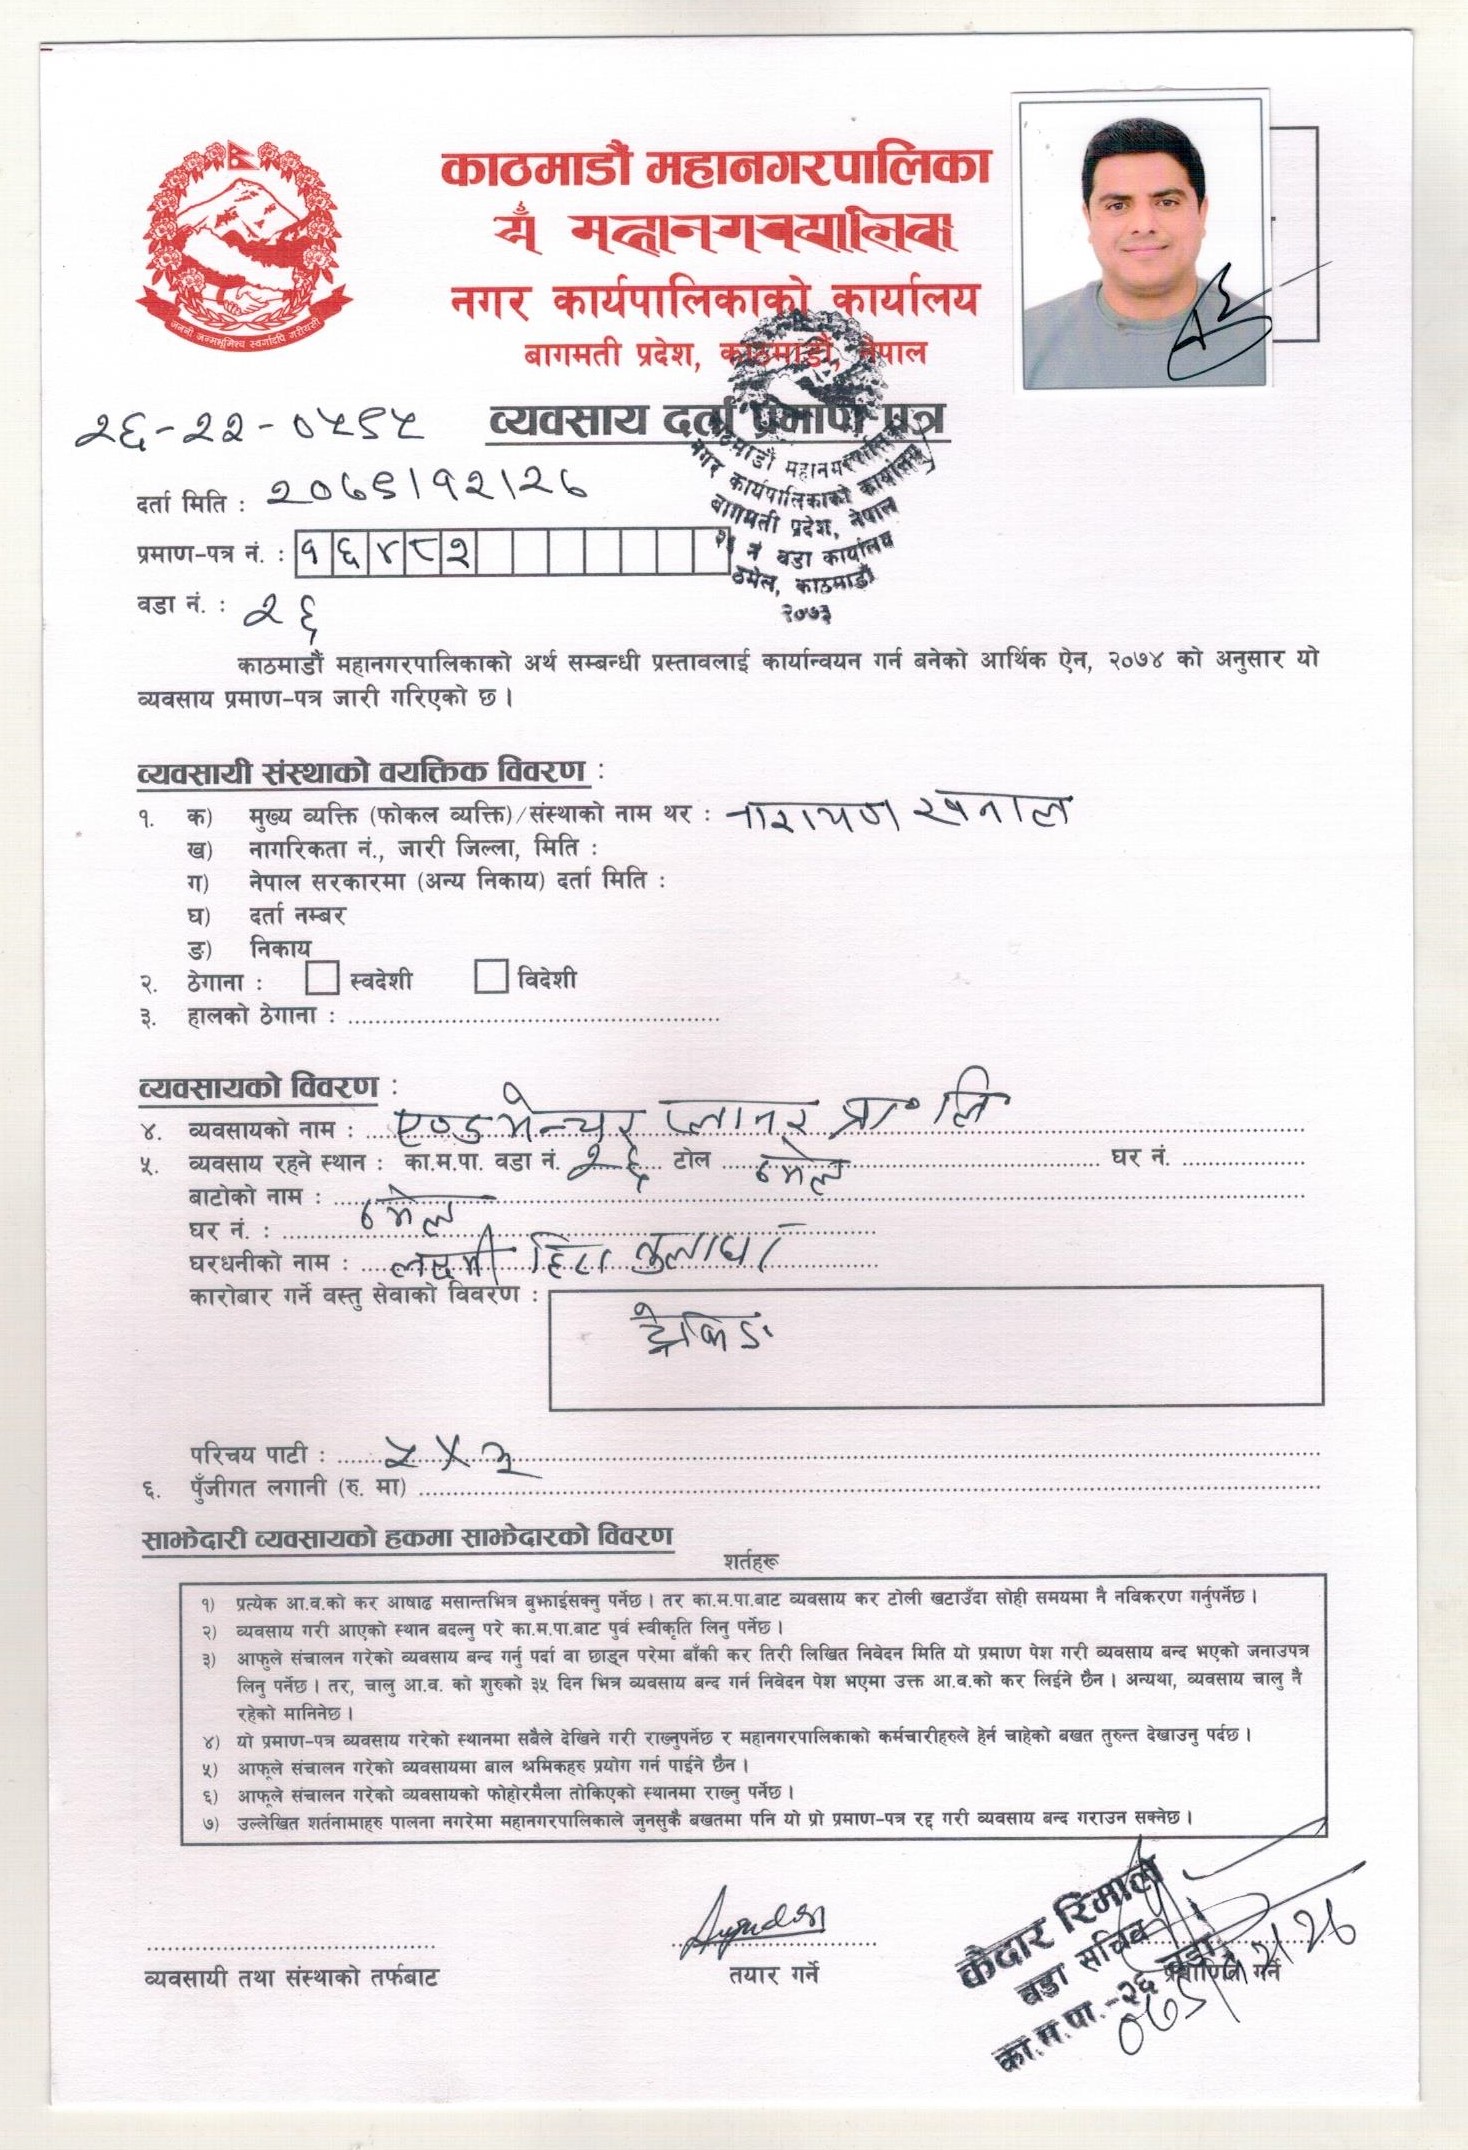 काठमाडौं महानगरपालिका
यँ महानगरपालिका
नगर कार्यपालिकाको कार्यालय
बागमती प्रदेश, काठमाडौं, नेपाल
जननी जन्मभूमिश्च स्वर्गादपि गरीयसी
व्यवसाय दर्ता प्रमाण-पत्र
२६-२२-०५९५
काठमाडौं महानगरपालिका
नगर कार्यपालिकाको कार्यालय
बागमती प्रदेश, नेपाल
२६ नं वडा कार्यालय
ठमेल, काठमाडौं
२०७३
दर्ता मिति : २०७९।१२।२७
प्रमाण-पत्र नं. : १६४८२
वडा नं. : २६
काठमाडौं महानगरपालिकाको अर्थ सम्बन्धी प्रस्तावलाई कार्यान्वयन गर्न बनेको आर्थिक ऐन, २०७४ को अनुसार यो
व्यवसाय प्रमाण-पत्र जारी गरिएको छ ।
व्यवसायी संस्थाको वयक्तिक विवरण :
१. क) मुख्य व्यक्ति (फोकल व्यक्ति)/संस्थाको नाम थर : नारायण खनाल
ख) नागरिकता नं., जारी जिल्ला, मिति :
ग) नेपाल सरकारमा (अन्य निकाय) दर्ता मिति :
घ) दर्ता नम्बर
ङ) निकाय
२. ठेगाना : स्वदेशी विदेशी
३. हालको ठेगाना :
व्यवसायको विवरण :
४. व्यवसायको नाम : एण्डभेन्चर प्लानर प्रा॰ लि
५. व्यवसाय रहने स्थान : का.म.पा. वडा नं. २६ टोल ठमेल घर नं.
बाटोको नाम : ठमेल
घर नं. :
घरधनीको नाम : लक्ष्मी हिरा तुलाधर
कारोबार गर्ने वस्तु सेवाको विवरण : ट्रेकिङ
परिचय पाटी : २ X ३
६. पुँजीगत लगानी (रु. मा)
साझेदारी व्यवसायको हकमा साझेदारको विवरण
शर्तहरू
१) प्रत्येक आ.व.को कर आषाढ मसान्तभित्र बुझाईसक्नु पर्नेछ । तर का.म.पा.बाट व्यवसाय कर टोली खटाउँदा सोही समयमा नै नविकरण गर्नुपर्नेछ ।
२) व्यवसाय गरी आएको स्थान बदल्नु परे का.म.पा.बाट पुर्व स्वीकृति लिनु पर्नेछ ।
३) आफुले संचालन गरेको व्यवसाय बन्द गर्नु पर्दा वा छाड्न परेमा बाँकी कर तिरी लिखित निवेदन मिति यो प्रमाण पेश गरी व्यवसाय बन्द भएको जनाउपत्र
लिनु पर्नेछ । तर, चालु आ.व. को शुरुको ३५ दिन भित्र व्यवसाय बन्द गर्न निवेदन पेश भएमा उक्त आ.व.को कर लिईने छैन । अन्यथा, व्यवसाय चालु नै
रहेको मानिनेछ ।
४) यो प्रमाण-पत्र व्यवसाय गरेको स्थानमा सबैले देखिने गरी राख्नुपर्नेछ र महानगरपालिकाको कर्मचारीहरुले हेर्न चाहेको बखत तुरुन्त देखाउनु पर्दछ ।
५) आफूले संचालन गरेको व्यवसायमा बाल श्रमिकहरु प्रयोग गर्न पाईने छैन ।
६) आफूले संचालन गरेको व्यवसायको फोहोरमैला तोकिएको स्थानमा राख्नु पर्नेछ ।
७) उल्लेखित शर्तनामाहरु पालना नगरेमा महानगरपालिकाले जुनसुकै बखतमा पनि यो प्रो प्रमाण-पत्र रद्द गरी व्यवसाय बन्द गराउन सक्नेछ ।
केदार रिमाल
वडा सचिव
का.म.पा.-२६ वडा
व्यवसायी तथा संस्थाको तर्फबाट
तयार गर्ने
प्रमाणित गर्ने